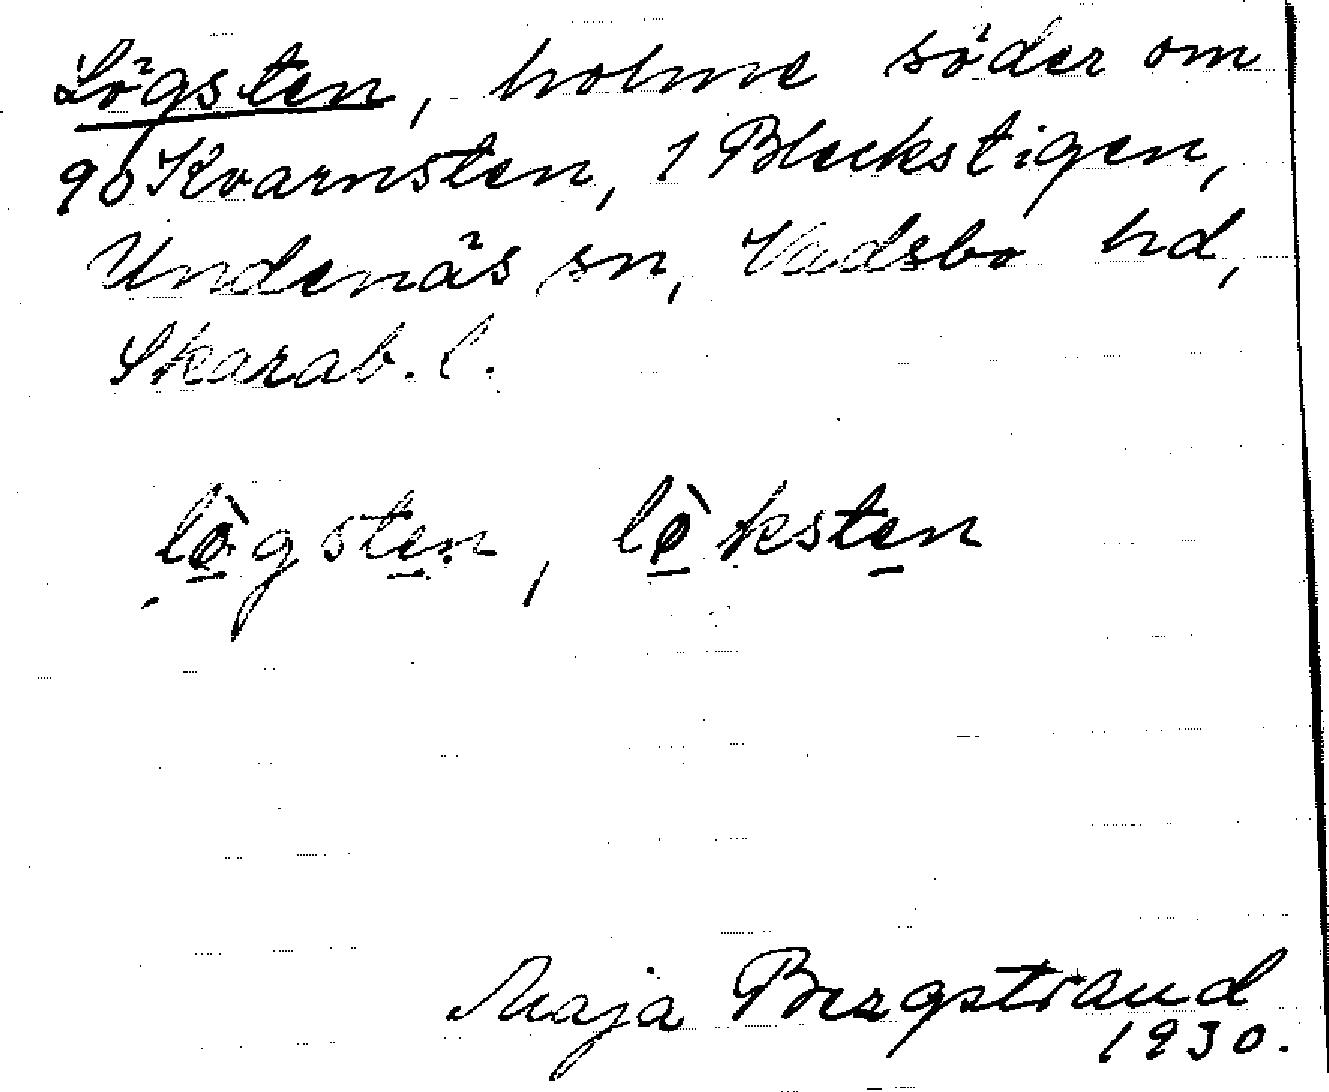 Lögsten, holme söder om
90 Kvarnsten, 1 Bleckstigen,
Undenäs sn, Vadsbo hd,
Skarab. l.
lø̀gsten, lø̀ksten
Maja Bergstrand
1930.